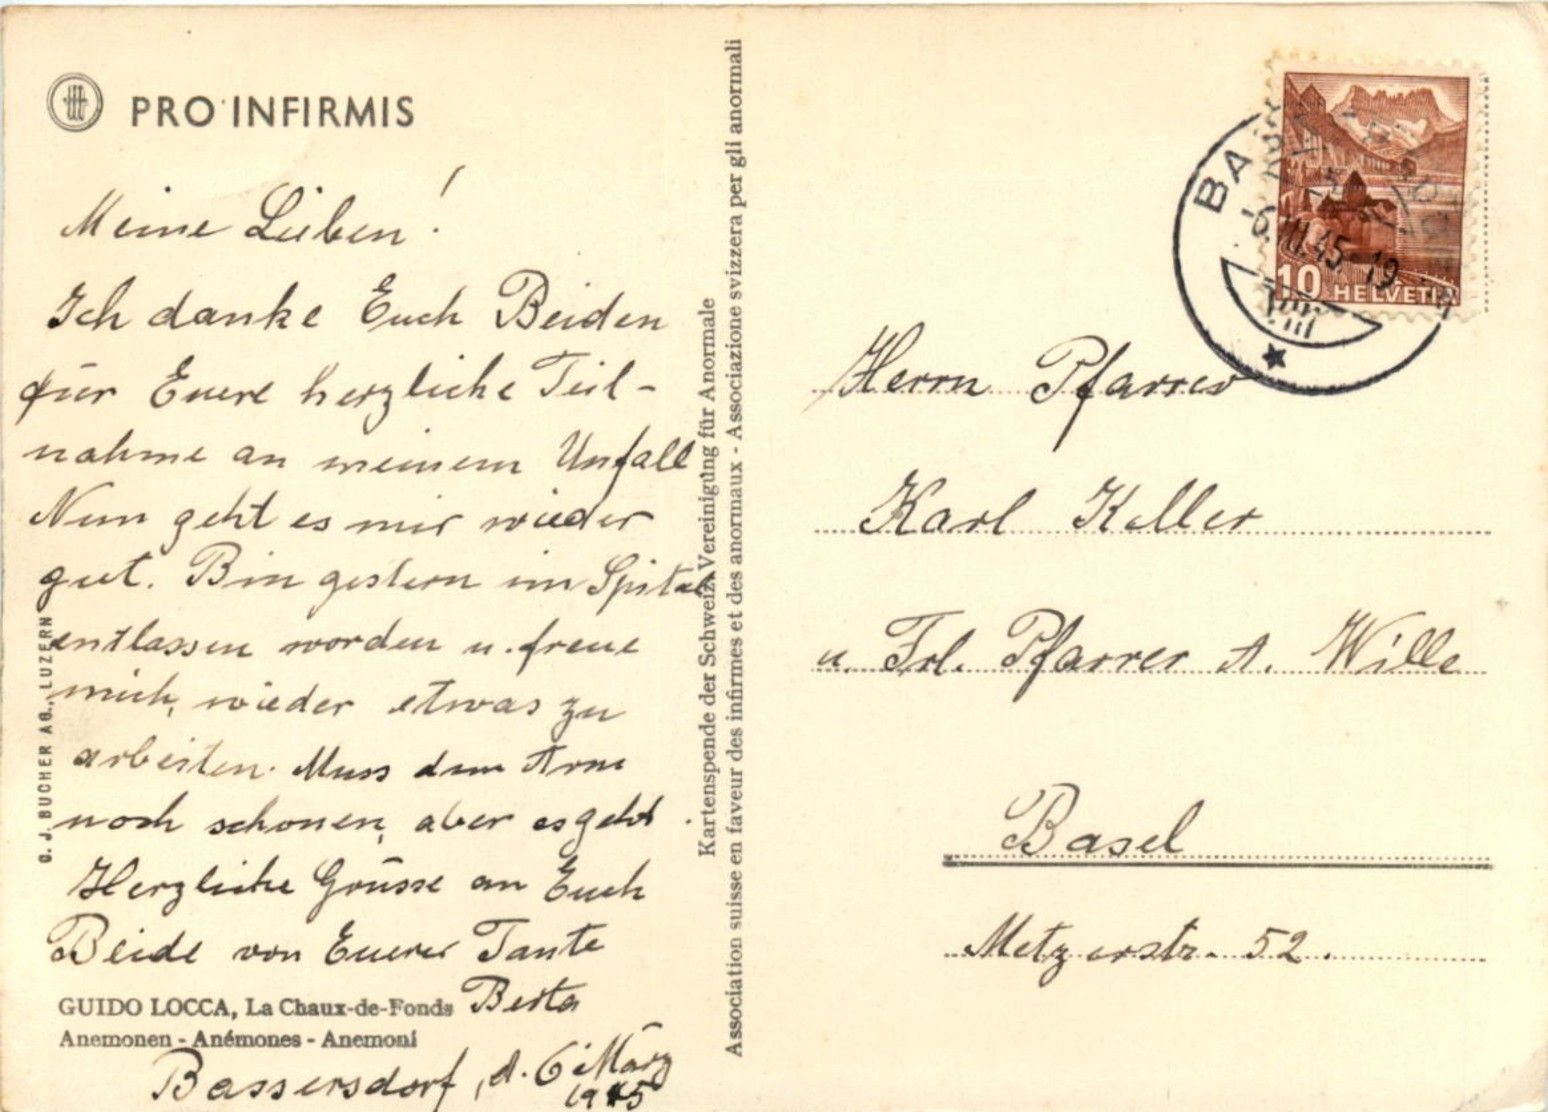 PRO INFIRMIS
Meine Lieben!
Ich danke Euch Beiden
für Euere herzliche Teil-
nahme an meinem Unfall
Nun geht es mir wieder
gut. Bin gestern im Spital
entlassen worden u. freue
mich, wieder etwas zu
arbeiten. Muss dem Arm
noch schonen, aber es geht.
Herzliche Grüsse an Euch
Beide von Euerer Tante
Berta
Bassersdorf, d. 6. März
1945
GUIDO LOCCA, La Chaux-de-Fonds
Anemonen - Anémones - Anemoni
C. J. BUCHER AG., LUZERN
Kartenspende der Schweiz. Vereinigung für Anormale
Association suisse en faveur des infirmes et des anormaux - Associazione svizzera per gli anormali
10 HELVETIA
III.45-19
Herrn Pfarrer
Karl Keller
u. Frl. Pfarrer A. Wille
Basel
Metzerstr. 52.